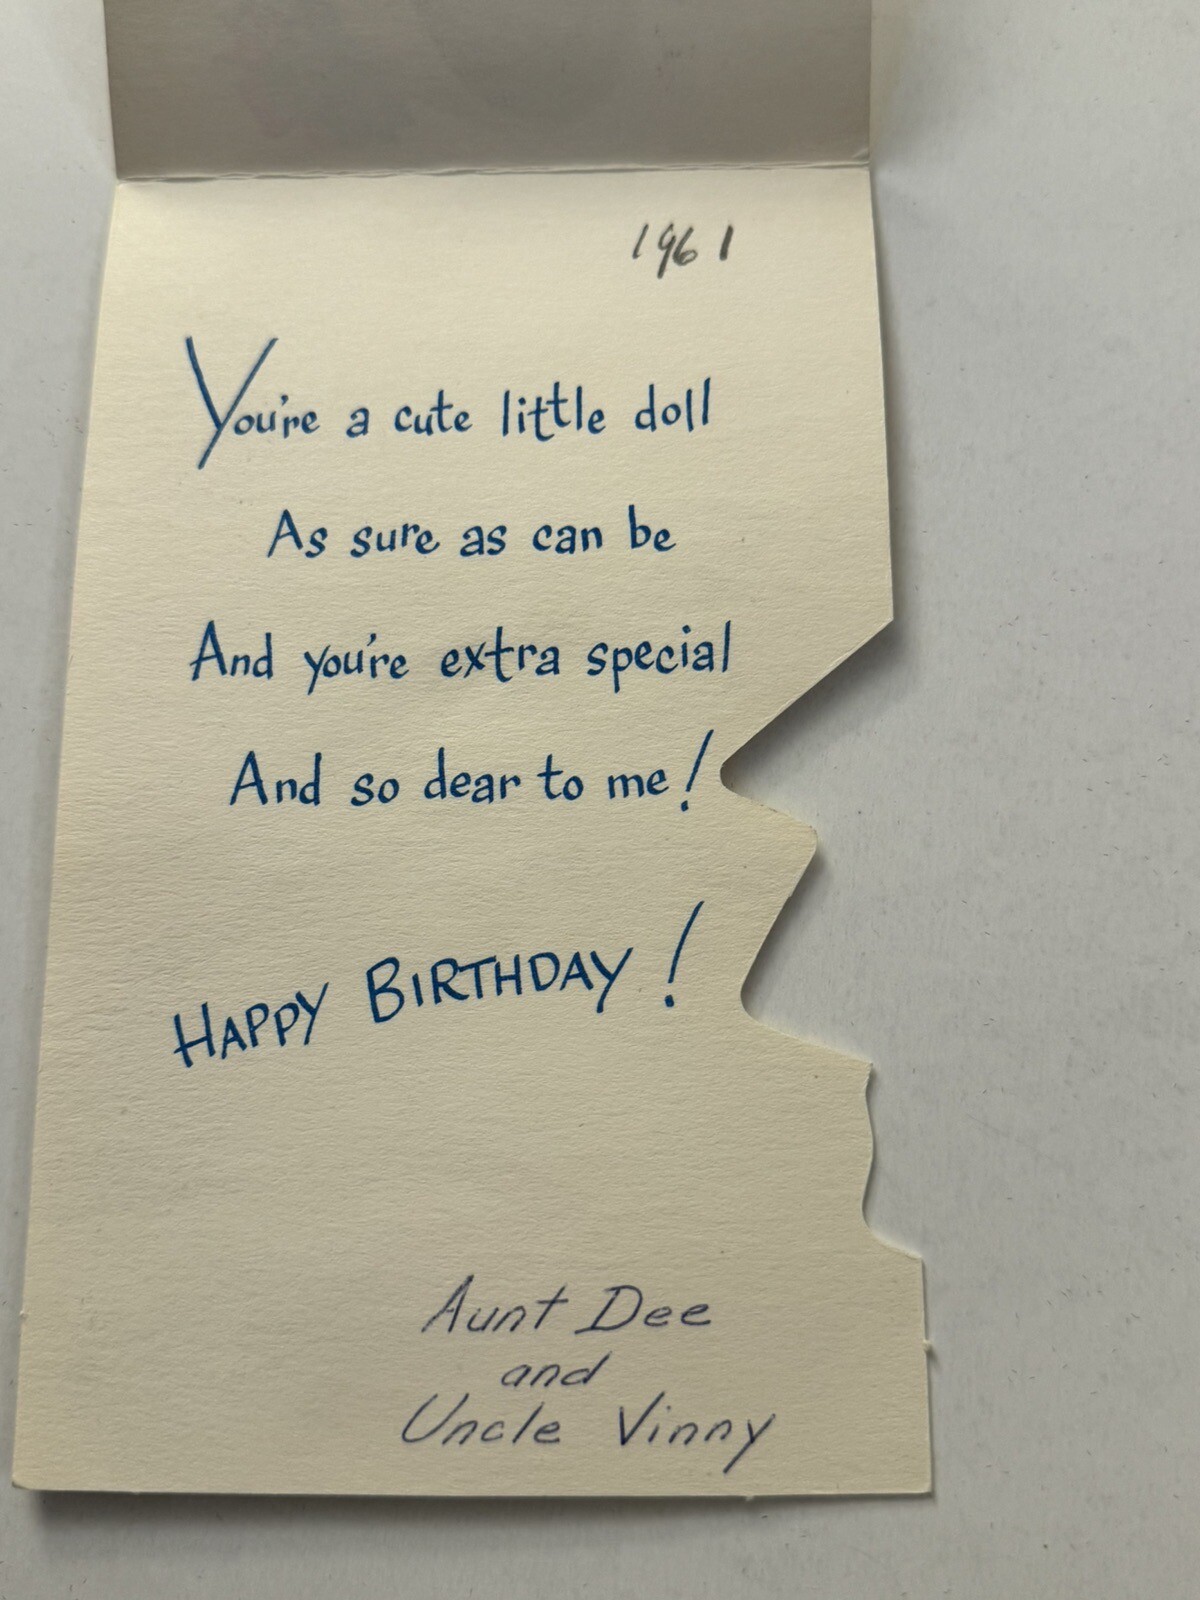 1961
You're a cute little doll
As sure as can be
And you're extra special
And so dear to me!
HAPPY BIRTHDAY!
Aunt Dee
and
Uncle Vinny